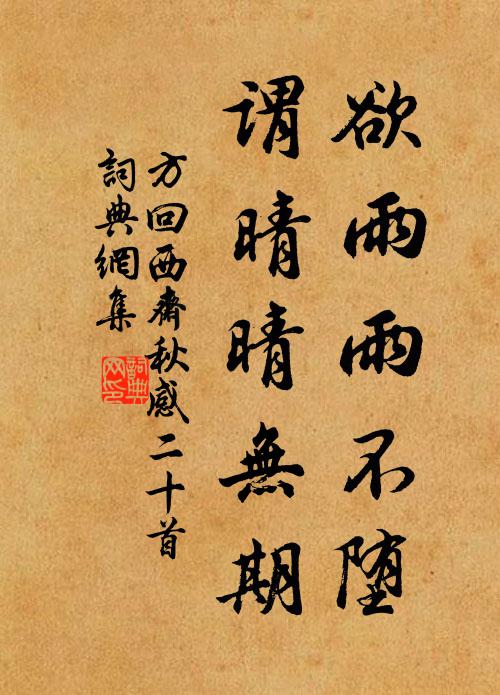 欲雨雨不堕
谓晴晴無期
方回西齋秋感二十首
詞典網集
詞典网印